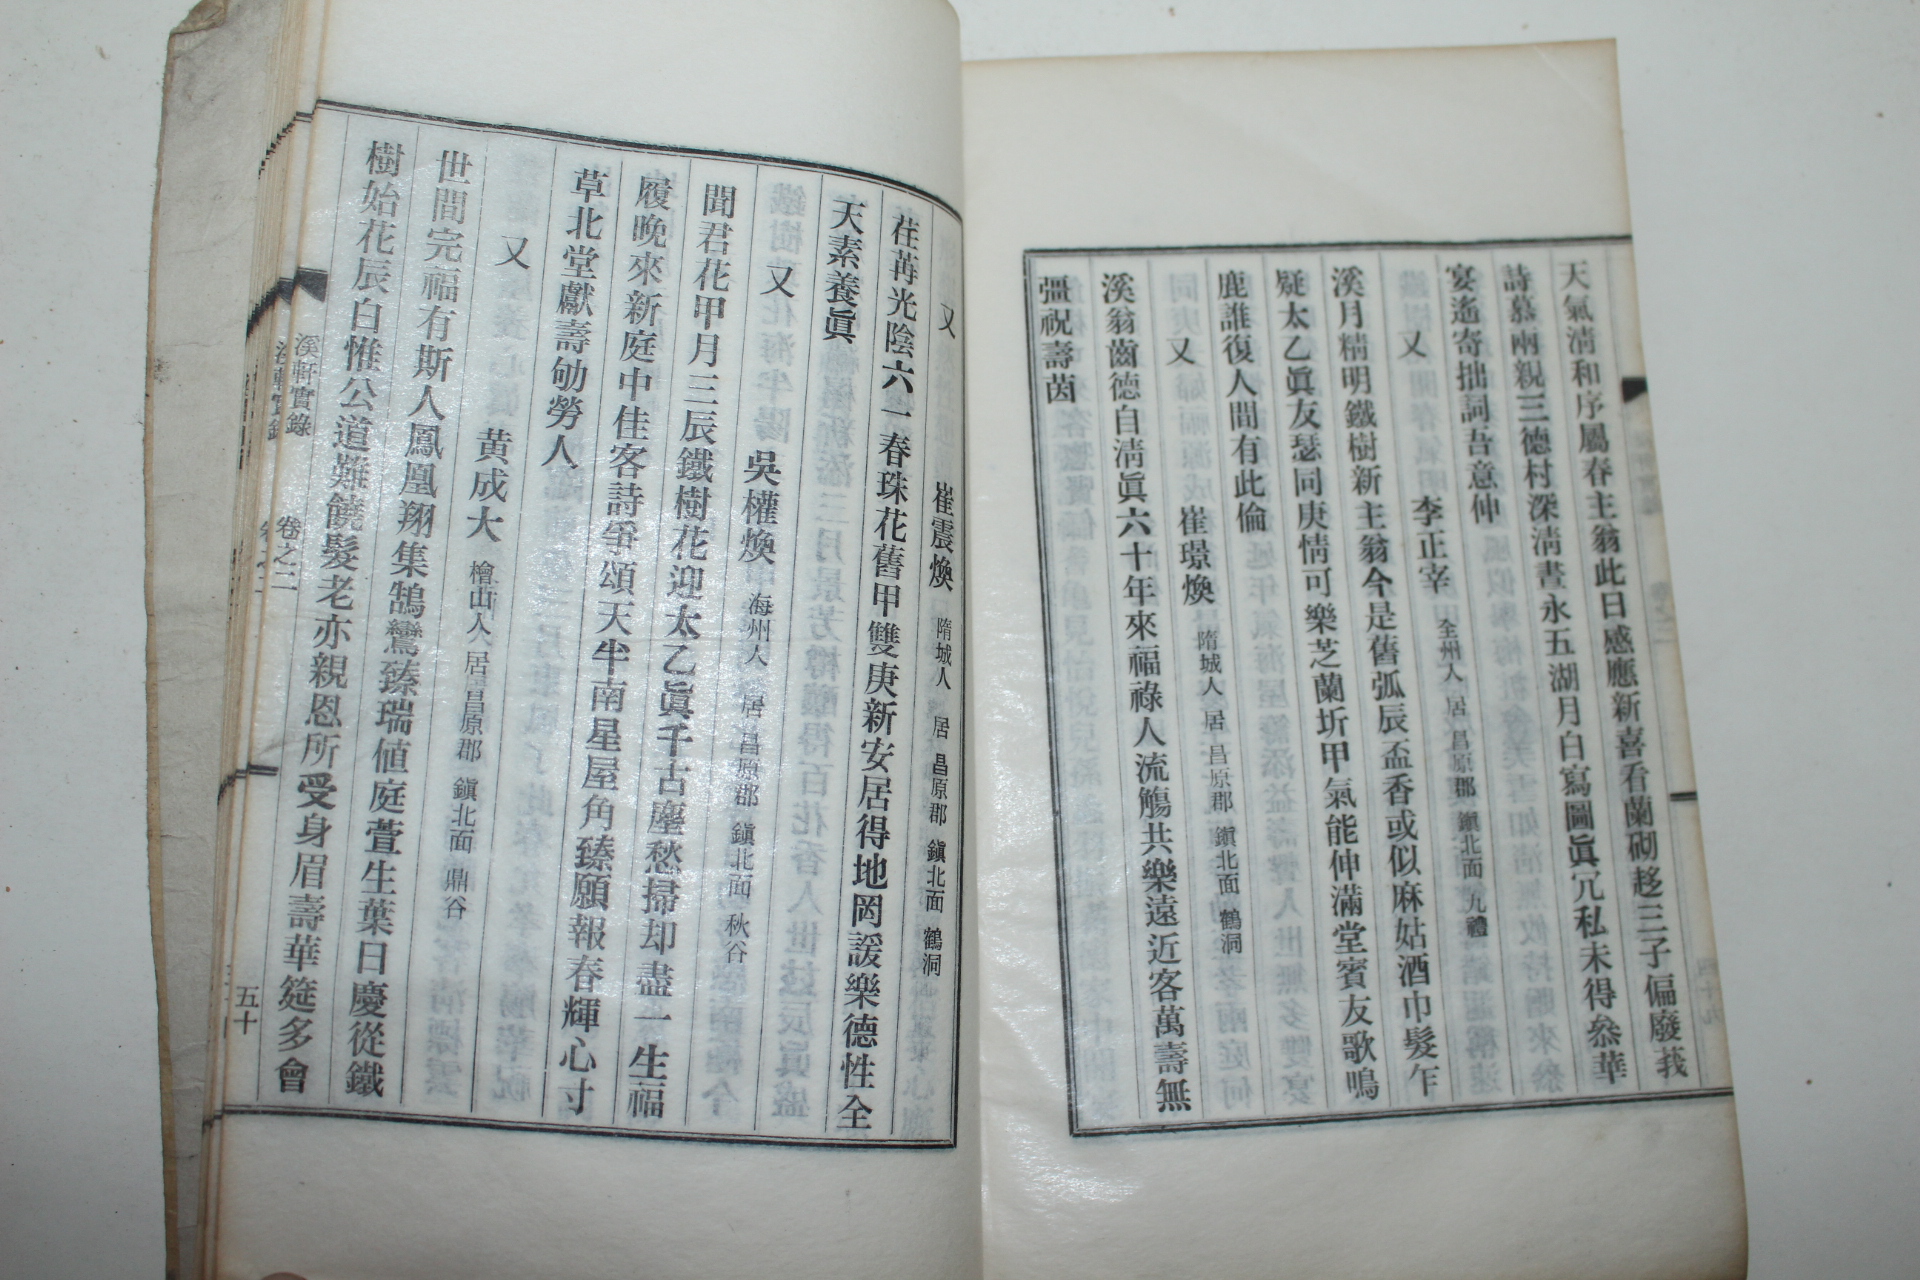 天氣淸和序屬春主翁此日感應新喜看蘭砌趍三子偏廢莪
詩慕兩親三德村深淸晝永五湖月白寫圖眞冗私未得叅華
宴遙寄拙詞吾意伸
又 李正宰 全州人 居 昌原郡 鎭北面 九禮
溪月精明鐵樹新主翁今是舊弧辰盃香或似麻姑酒巾髮乍
疑太乙眞友瑟同庚情可樂芝蘭圻甲氣能伸滿堂賓友歌鳴
鹿誰復人間有此倫
又 崔璟煥 隋城人 居 昌原郡 鎭北面 鶴洞
溪翁齒德自淸眞六十年來福祿人流觴共樂遠近客萬壽無
彊祝壽茵
又 崔震煥 隋城人 居 昌原郡 鎭北面 鶴洞
荏苒光陰六一春珠花舊甲雙庚新安居得地岡諼樂德性全
天素養眞
又 吳權煥 海州人 居 昌原郡 鎭北面 秋谷
聞君花甲月三辰鐵樹花迎太乙眞千古塵愁掃却盡一生福
履晩來新庭中佳客詩爭頌天半南星屋角臻願報春輝心寸
草北堂獻壽劬勞人
又 黃成大 檜山人 居 昌原郡 鎭北面 鼎谷
世間完福有斯人鳳凰翔集鵠鸞臻瑞値庭萱生葉日慶從鐵
樹始花辰白惟公道難饒髮老亦親恩所受身眉壽華筵多會
溪軒實錄 卷之二 五十